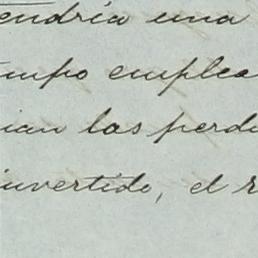 tendría una
empo emplea
ian las perd
invertido, el r